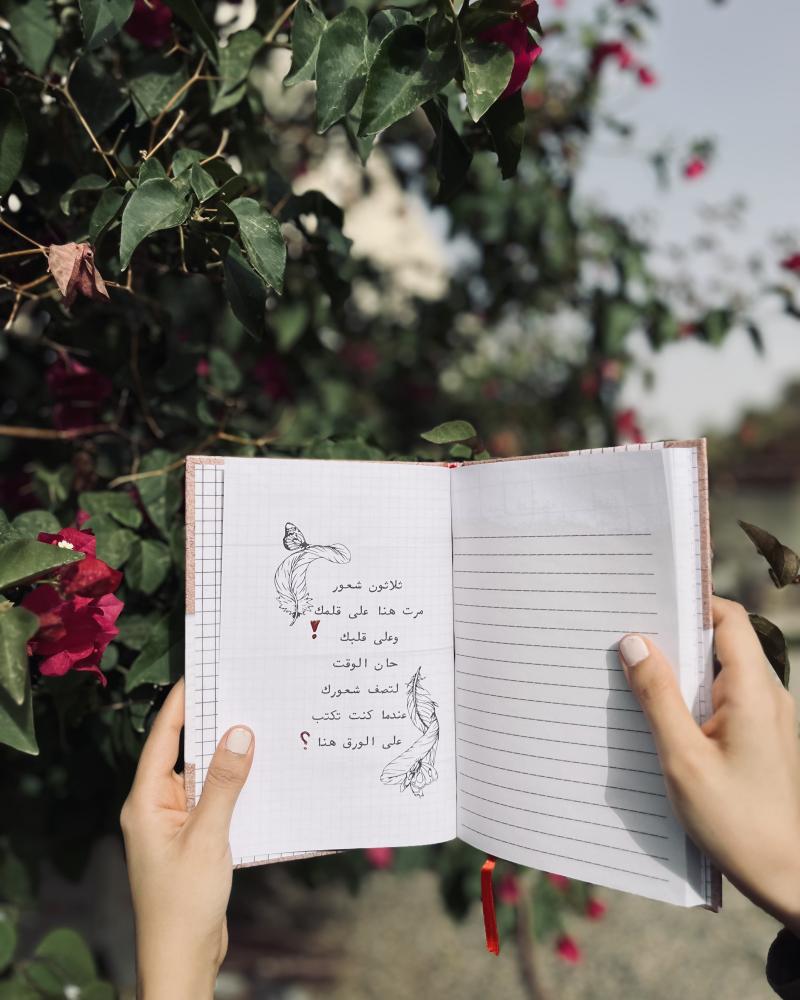 ثلاثون شعور
مرت هنا على قلمك
وعلى قلبك !
حان الوقت
لتصف شعورك
عندما كنت تكتب
على الورق هنا ؟